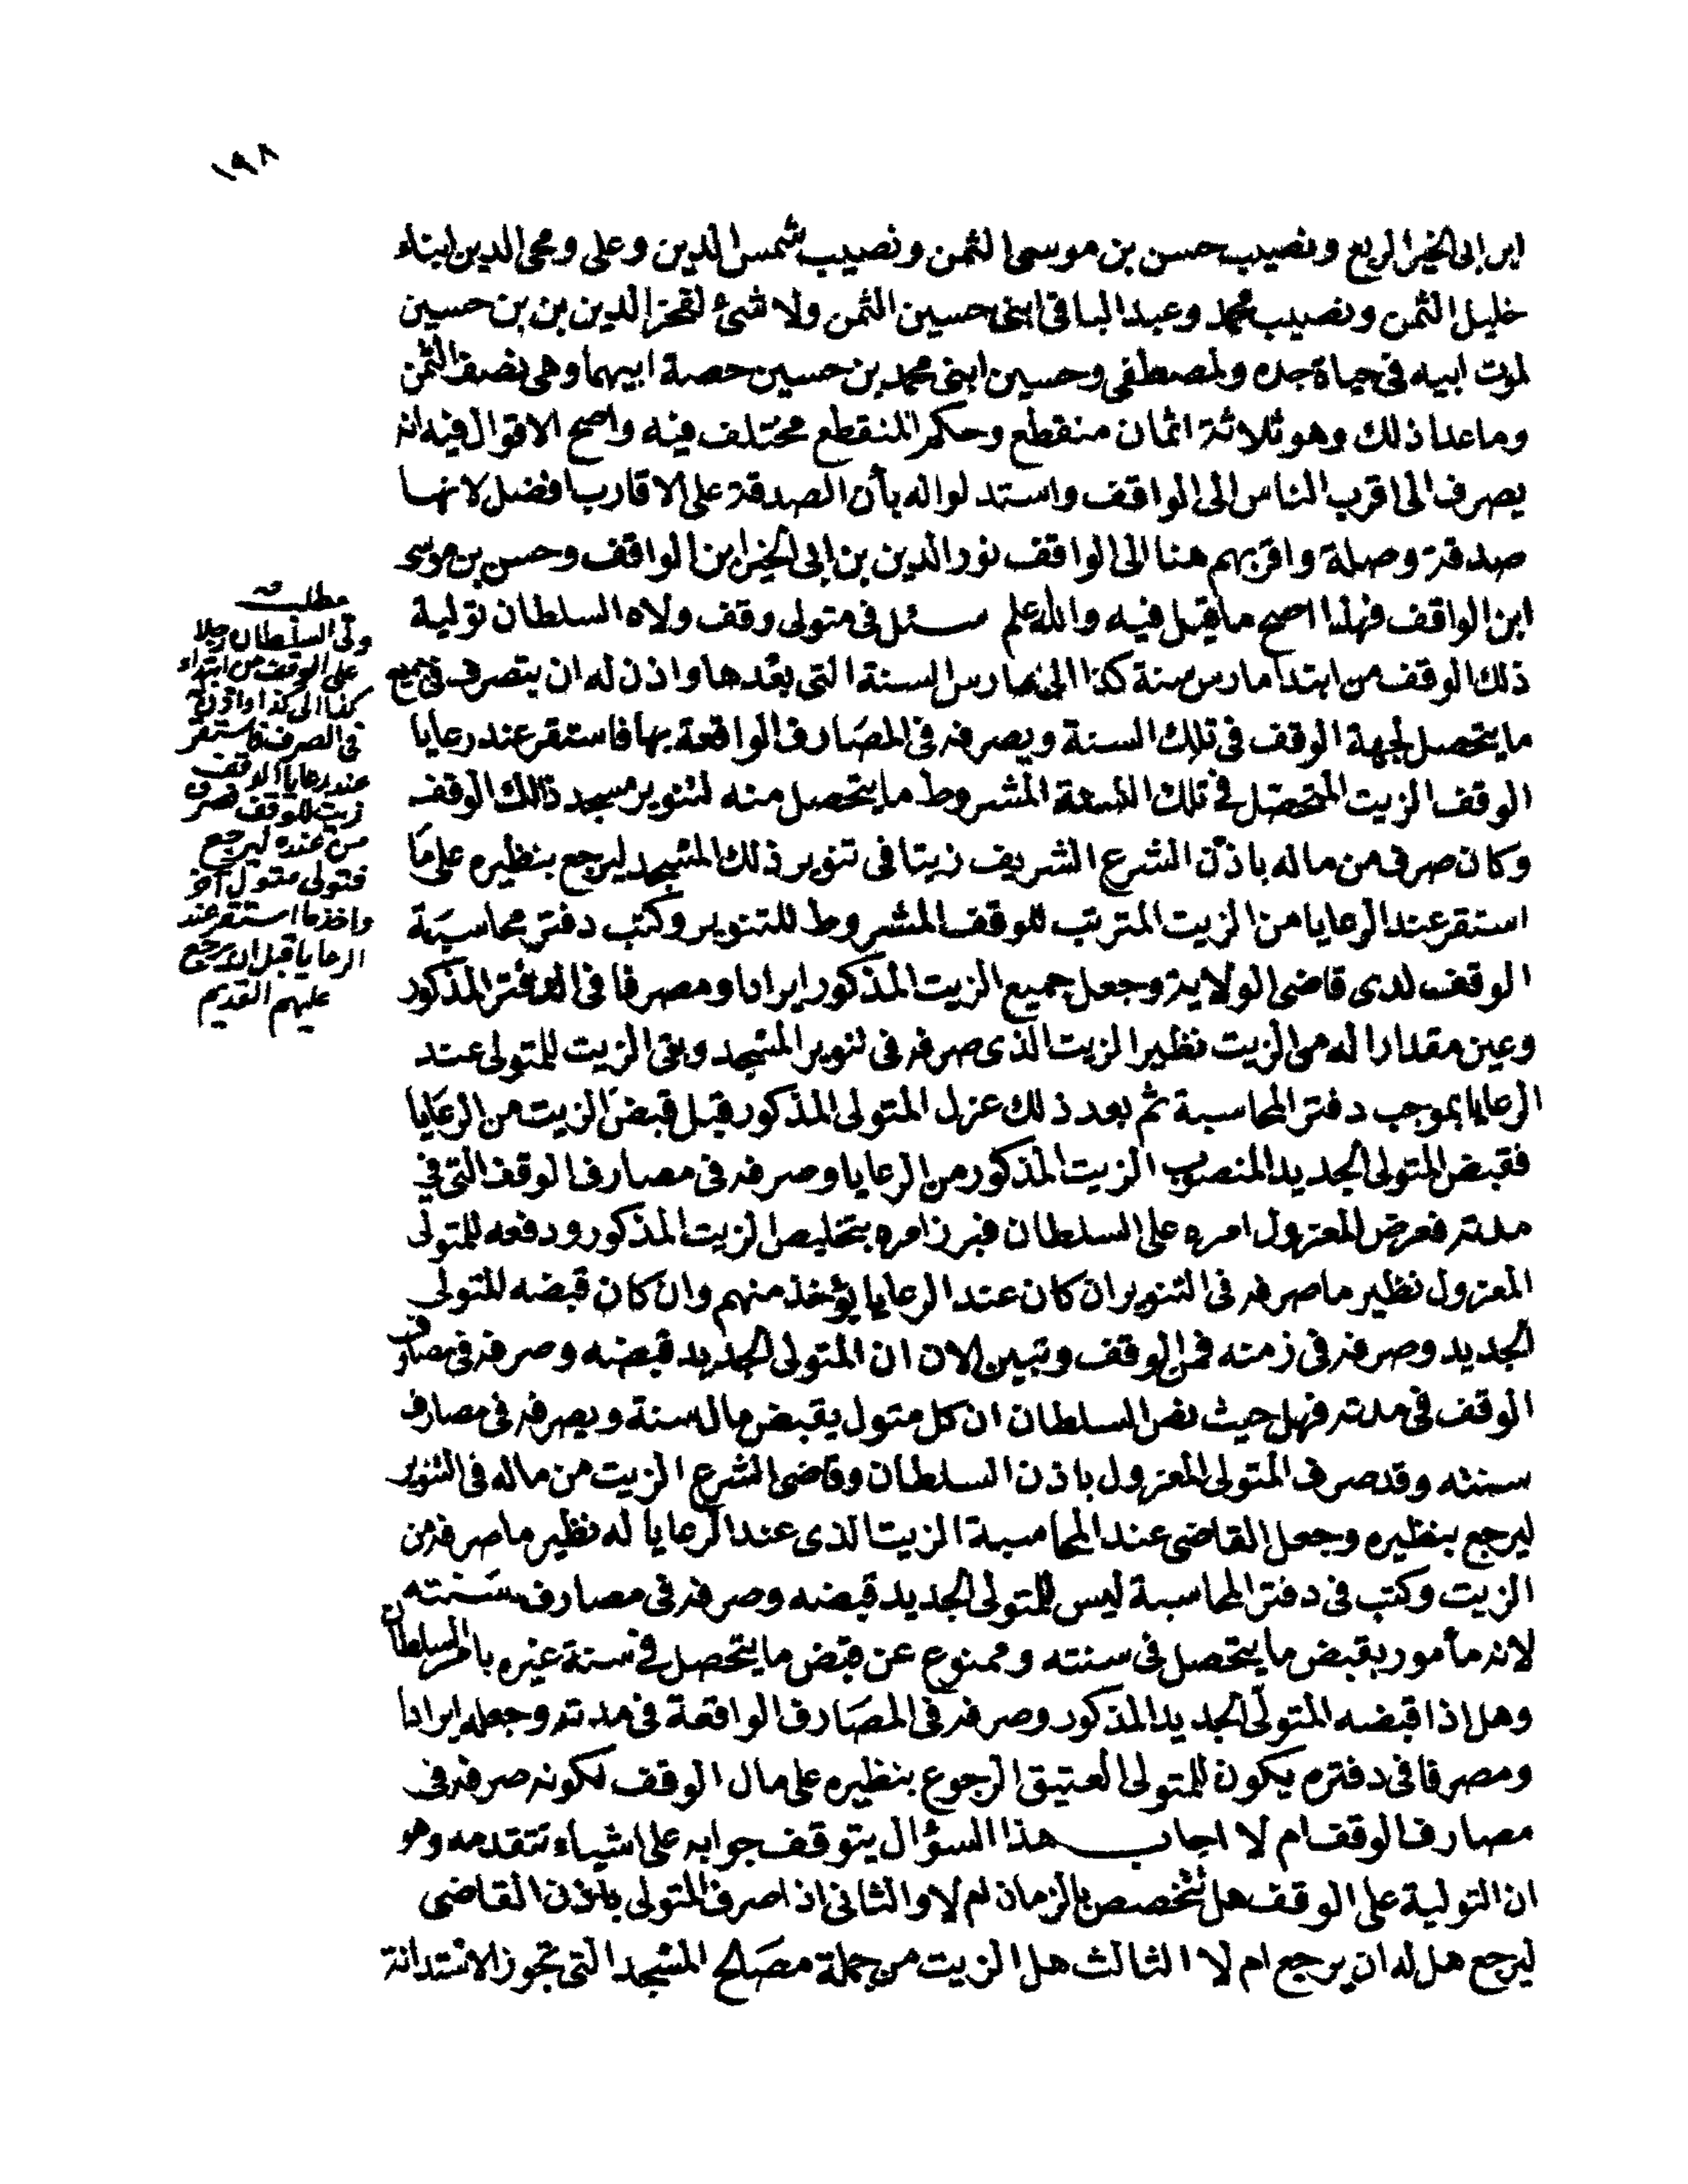 ١٩٨
ابن ابى الخير الربع ونصيب حسن بن موسى الثمن ونصيب شمس الدين وعلى ومحى الدين ابناء
خليل الثمن ونصيب محمد وعبد الباقى ابنى حسين الثمن ولا شئ لفخر الدين بن بن حسين
لموت ابيه فى حياة جده ولمصطفى وحسين ابنى محمد بن حسين حصة ابيهما وهى نصف الثمن
وما عدا ذلك وهو ثلاثة اثمان منقطع وحكم المنقطع مختلف فيه واصح الاقوال فيه انه
يصرف الى اقرب الناس الى الواقف واستدلوا له بأن الصدقة على الاقارب افضل لانها
صدقة وصلة واقربهم هنا الى الواقف نور الدين بن ابى الخير ابن الواقف وحسن بن موسى
ابن الواقف فهذا اصح ما قيل فيه والله اعلم سئل فى متولى وقف ولاه السلطان تولية
ذلك الوقف من ابتدا مارس سنة كذا الى مارس السنة التى بعدها واذن له ان يتصرف فى جميع
ما يتحصل لجهة الوقف فى تلك السنة ويصرفه فى المصارف الواقعة بها فاستقر عند رعايا
الوقف الزيت المتحصل فى تلك السنة المشروط ما يتحصل منه لتنوير مسجد ذلك الوقف
وكان صرف من ماله باذن الشرع الشريف زيتا فى تنوير ذلك المسجد ليرجع بنظيره على ما
استقر عند الرعايا من الزيت المترتب للوقف المشروط للتنوير وكتب دفتر محاسبة
الوقف لدى قاضى الولاية وجعل جميع الزيت المذكور ايرادا ومصرفا فى الدفتر المذكور
وعين مقدارا له من الزيت نظير الزيت الذى صرفه فى تنوير المسجد وبقى الزيت للمتولى عند
الرعايا بموجب دفتر المحاسبة ثم بعد ذلك عزل المتولى المذكور قبل قبض الزيت من الرعايا
فقبض المتولى الجديد المنصوب الزيت المذكور من الرعايا وصرفه فى مصارف الوقف التى فى
مدته فعرض المعزول امره على السلطان فبرز امره بتخليص الزيت المذكور ودفعه للمتولى
المعزول نظير ما صرفه فى التنوير ان كان عند الرعايا يؤخذ منهم وان كان قبضه المتولى
الجديد وصرفه فى زمنه فمن الوقف وتبين الان ان المتولى الجديد قبضه وصرفه فى مصارف
الوقف فى مدته فهل حيث نص السلطان ان كل متول يقبض مال سنة ويصرفه فى مصارف
سنته وقد صرف المتولى المعزول باذن السلطان وقاضى الشرع الزيت من ماله فى التنوير
ليرجع بنظيره وجعل القاضى عند المحاسبة الزيت الذى عند الرعايا له نظير ما صرفه من
الزيت وكتب فى دفتر المحاسبة ليس للمتولى الجديد قبضه وصرفه فى مصارف سنته
لانه مأمور بقبض ما يتحصل فى سنته وممنوع عن قبض ما يتحصل فى سنة غيره بامر السلطان
وهل اذا قبضه المتولى الجديد المذكور وصرفه فى المصارف الواقعة فى مدته وجعله ايرادا
ومصرفا فى دفتره يكون للمتولى العتيق الرجوع بنظيره على مال الوقف لكونه صرفه فى
مصارف الوقف ام لا اجاب هذا السؤال يتوقف جوابه على اشياء تتقدمه وهو
ان التولية على الوقف هل تتخصص بالزمان ام لا والثانى اذا صرف المتولى باذن القاضى
ليرجع هل له ان يرجع ام لا الثالث هل الزيت من جملة مصالح المسجد التى تجوز الاستدانة
مطلب
ولى السلطان رجلا
على الوقف من ابتداء
كذا الى كذا واذن له
فى الصرف فاستقر
عند رعايا الوقف
زيت للوقف فصرف
من عنده ليرجع
فتولى متول آخر
واخذ ما استقر عند
الرعايا قبل ان يرجع
عليهم القديم